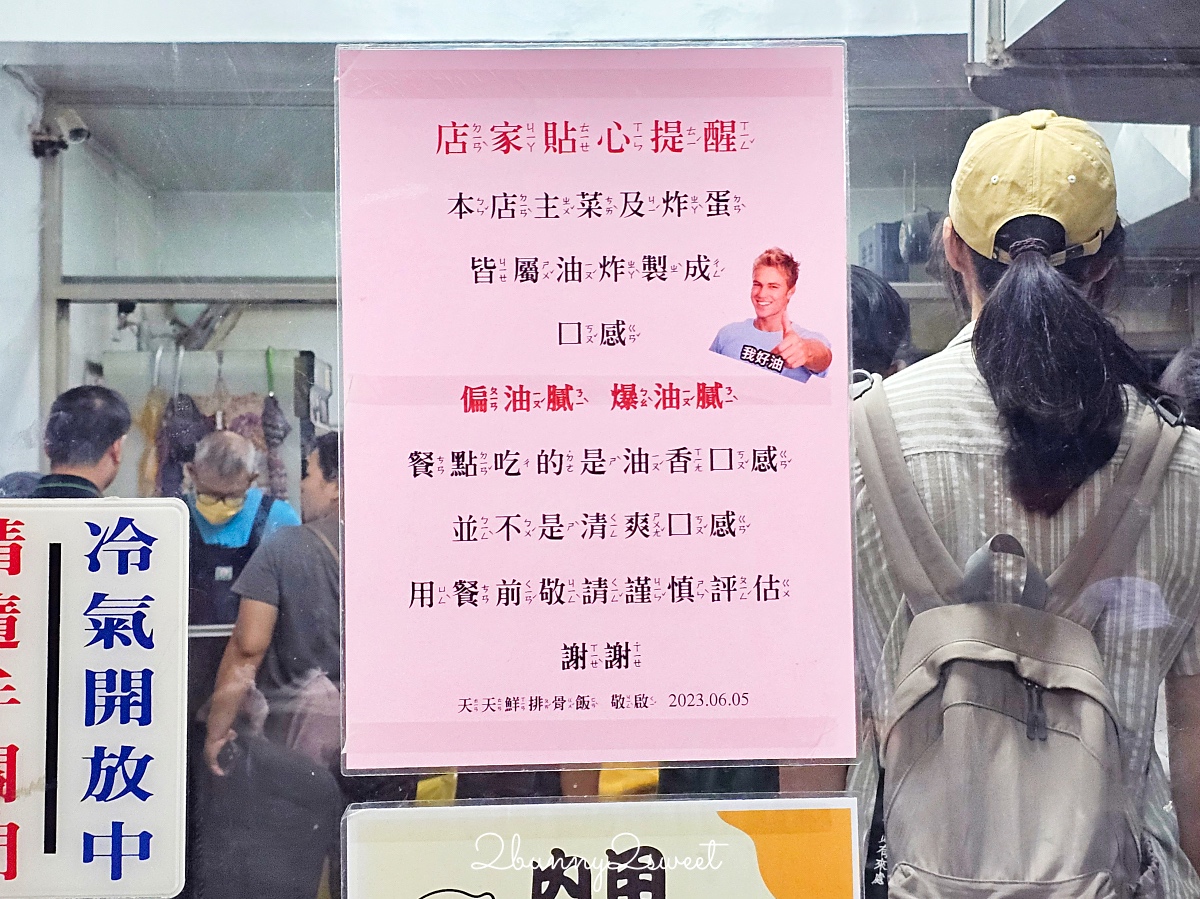 店家貼心提醒
本店主菜及炸蛋
皆屬油炸製成
口感
我好油
偏油膩 爆油膩
餐點吃的是油香口感
並不是清爽口感
用餐前敬請謹慎評估
謝謝
天天鮮排骨飯 敬啟 2023.06.05
冷氣開放中
請隨手關門
內用
2bunny2sweet
有來處